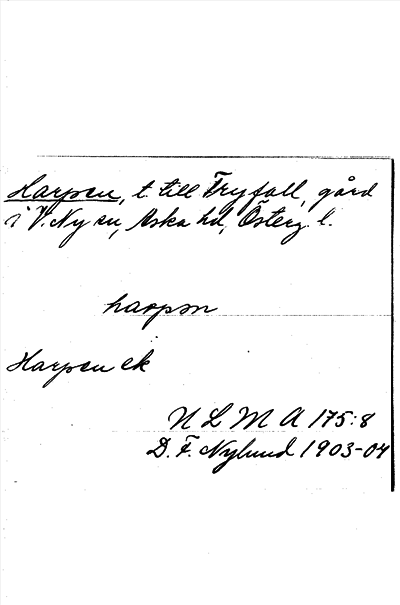 Harpen, t. till Fryfall, gård
i V. Ny sn, Aska hd, Österg. l.
harpen
Harpen ek
N L M A 175:8
D. F. Nylund 1903-04